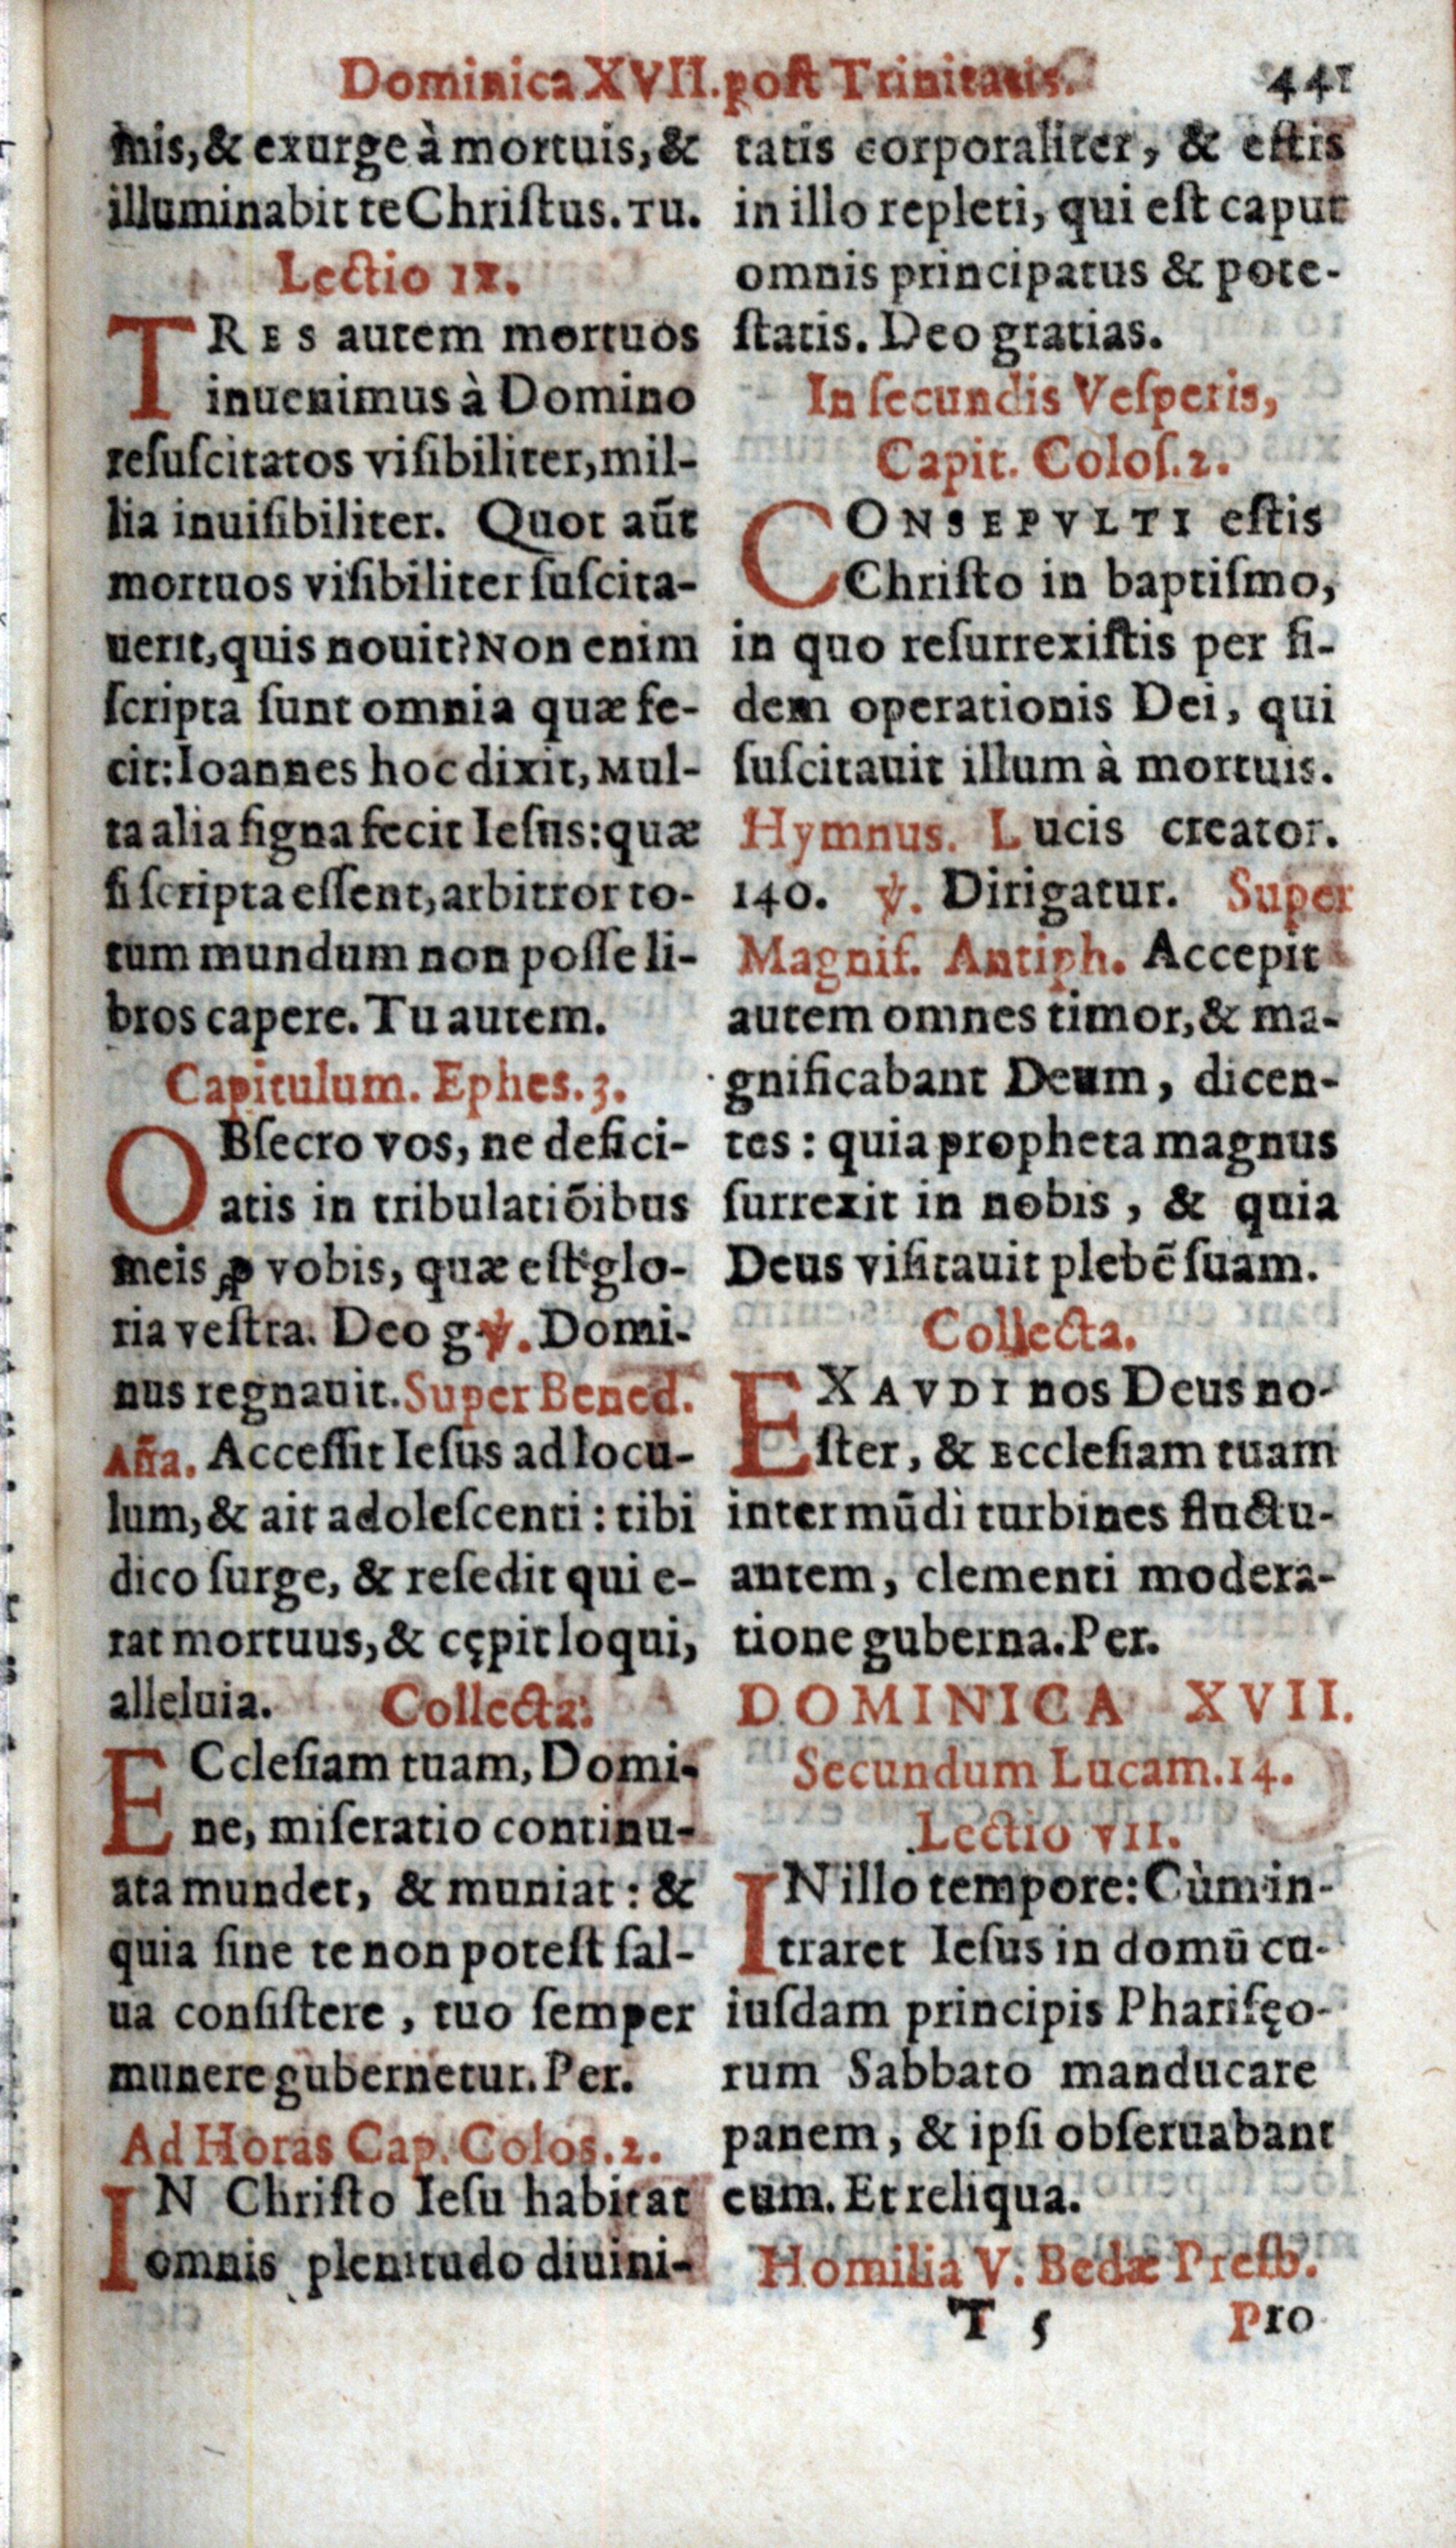 Dominica XVII. poſt Trinitatis. 441
mis, & exurge à mortuis, &
illuminabit te Chriſtus. Tu.
Lectio IX.
TRES autem mortuos
inuenimus à Domino
reſuſcitatos viſibiliter, mil-
lia inuiſibiliter. Quot aūt
mortuos viſibiliter ſuſcita-
uerit, quis nouit? Non enim
ſcripta ſunt omnia quæ fe-
cit: Ioannes hoc dixit, Mul-
ta alia ſigna fecit Ieſus: quæ
ſi ſcripta eſſent, arbitror to-
tum mundum non poſſe li-
bros capere. Tu autem.
Capitulum. Ephes. 3.
OBſecro vos, ne defici-
atis in tribulatiōibus
meis ꝓ vobis, quæ eſt glo-
ria veſtra. Deo g. ℣. Domi-
nus regnauit. Super Bened.
Añа. Acceſſit Ieſus ad locu-
lum, & ait adoleſcenti: tibi
dico ſurge, & reſedit qui e-
rat mortuus, & cępit loqui,
alleluia. Collecta:
ECcleſiam tuam, Domi-
ne, miſeratio continu-
ata mundet, & muniat: &
quia ſine te non poteſt ſal-
ua conſiſtere, tuo ſemper
munere gubernetur. Per.
Ad Horas Cap. Colos. 2.
IN Chriſto Ieſu habitat
omnis plenitudo diuini-
tatis corporaliter, & eſtis
in illo repleti, qui eſt caput
omnis principatus & pote-
ſtatis. Deo gratias.
In ſecundis Veſperis,
Capit. Coloſ. 2.
CONSEPVLTI eſtis
Chriſto in baptiſmo,
in quo reſurrexiſtis per fi-
dem operationis Dei, qui
ſuſcitauit illum à mortuis.
Hymnus. Lucis creator.
140. ℣. Dirigatur. Super
Magnif. Antiph. Accepit
autem omnes timor, & ma-
gnificabant Deum, dicen-
tes: quia propheta magnus
ſurrexit in nobis, & quia
Deus viſitauit plebē ſuam.
Collecta.
EXAVDI nos Deus no-
ſter, & Eccleſiam tuam
inter mūdi turbines fluctu-
antem, clementi modera-
tione guberna. Per.
DOMINICA XVII.
Secundum Lucam. 14.
Lectio VII.
IN illo tempore: Cùm in-
traret Ieſus in domū cu-
iuſdam principis Phariſęo-
rum Sabbato manducare
panem, & ipſi obſeruabant
eum. Et reliqua.
Homilia V. Bedæ Preſb.
T 5 Pro